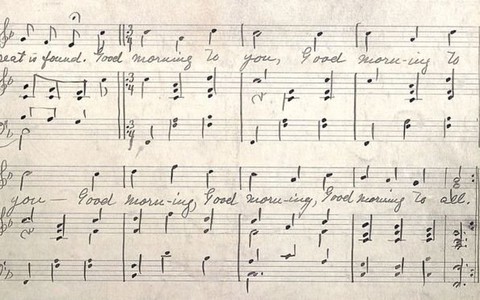 eat is found. Good morning to you, Good morn-ing to
you — Good morn-ing, Good morn-ing, Good morning to all.